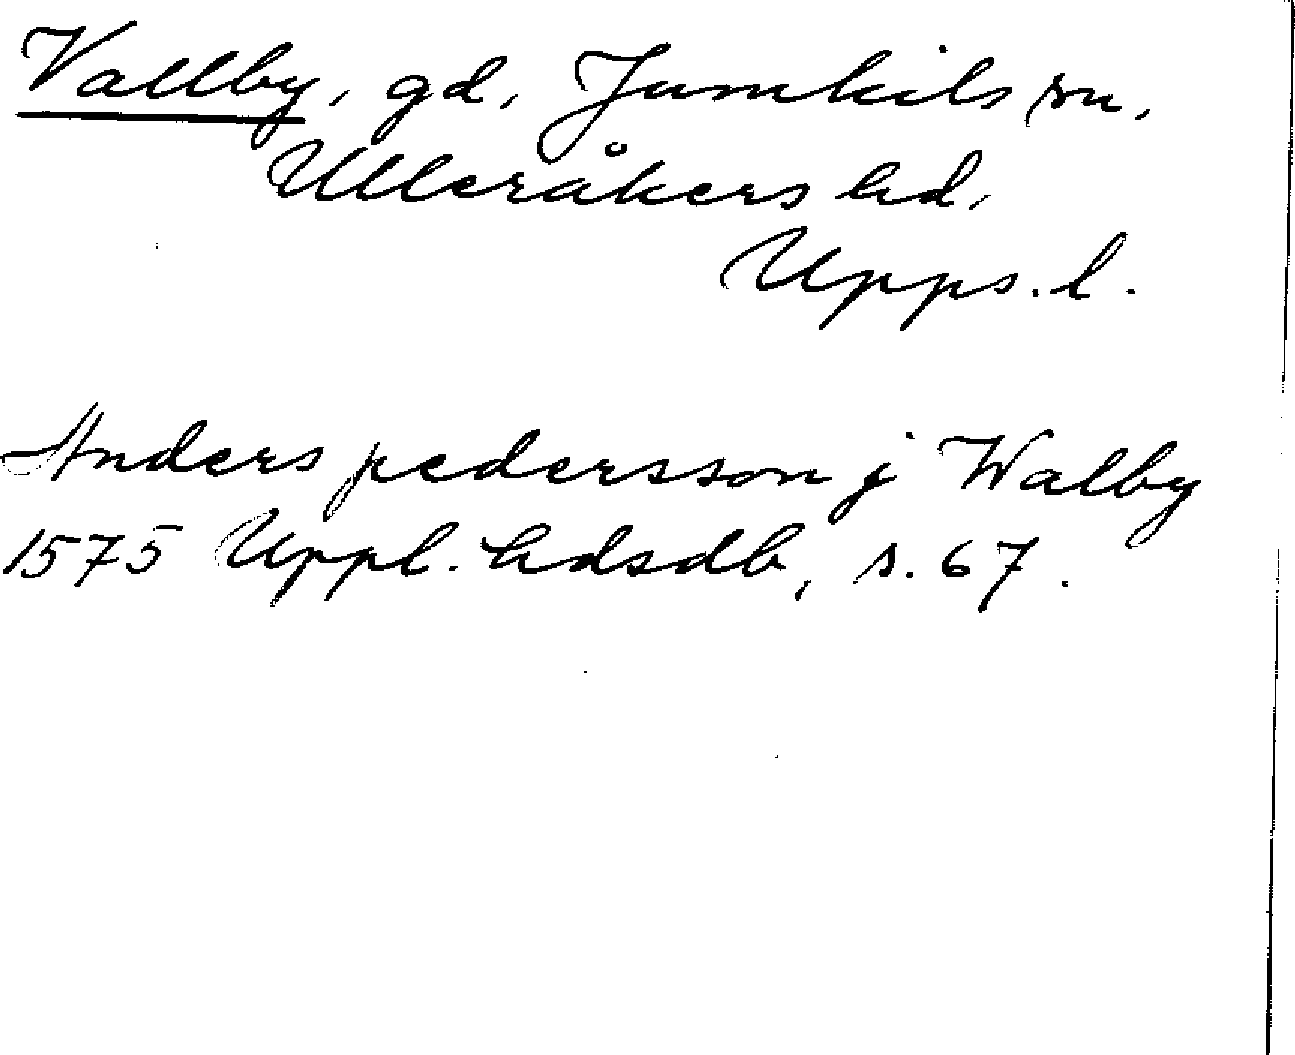 Vallby, gd, Jumkils sn,
Ulleråkers hd,
Upps. l.
Anders pedersson j Walby
1575 Uppl. hdsdb, s. 67.